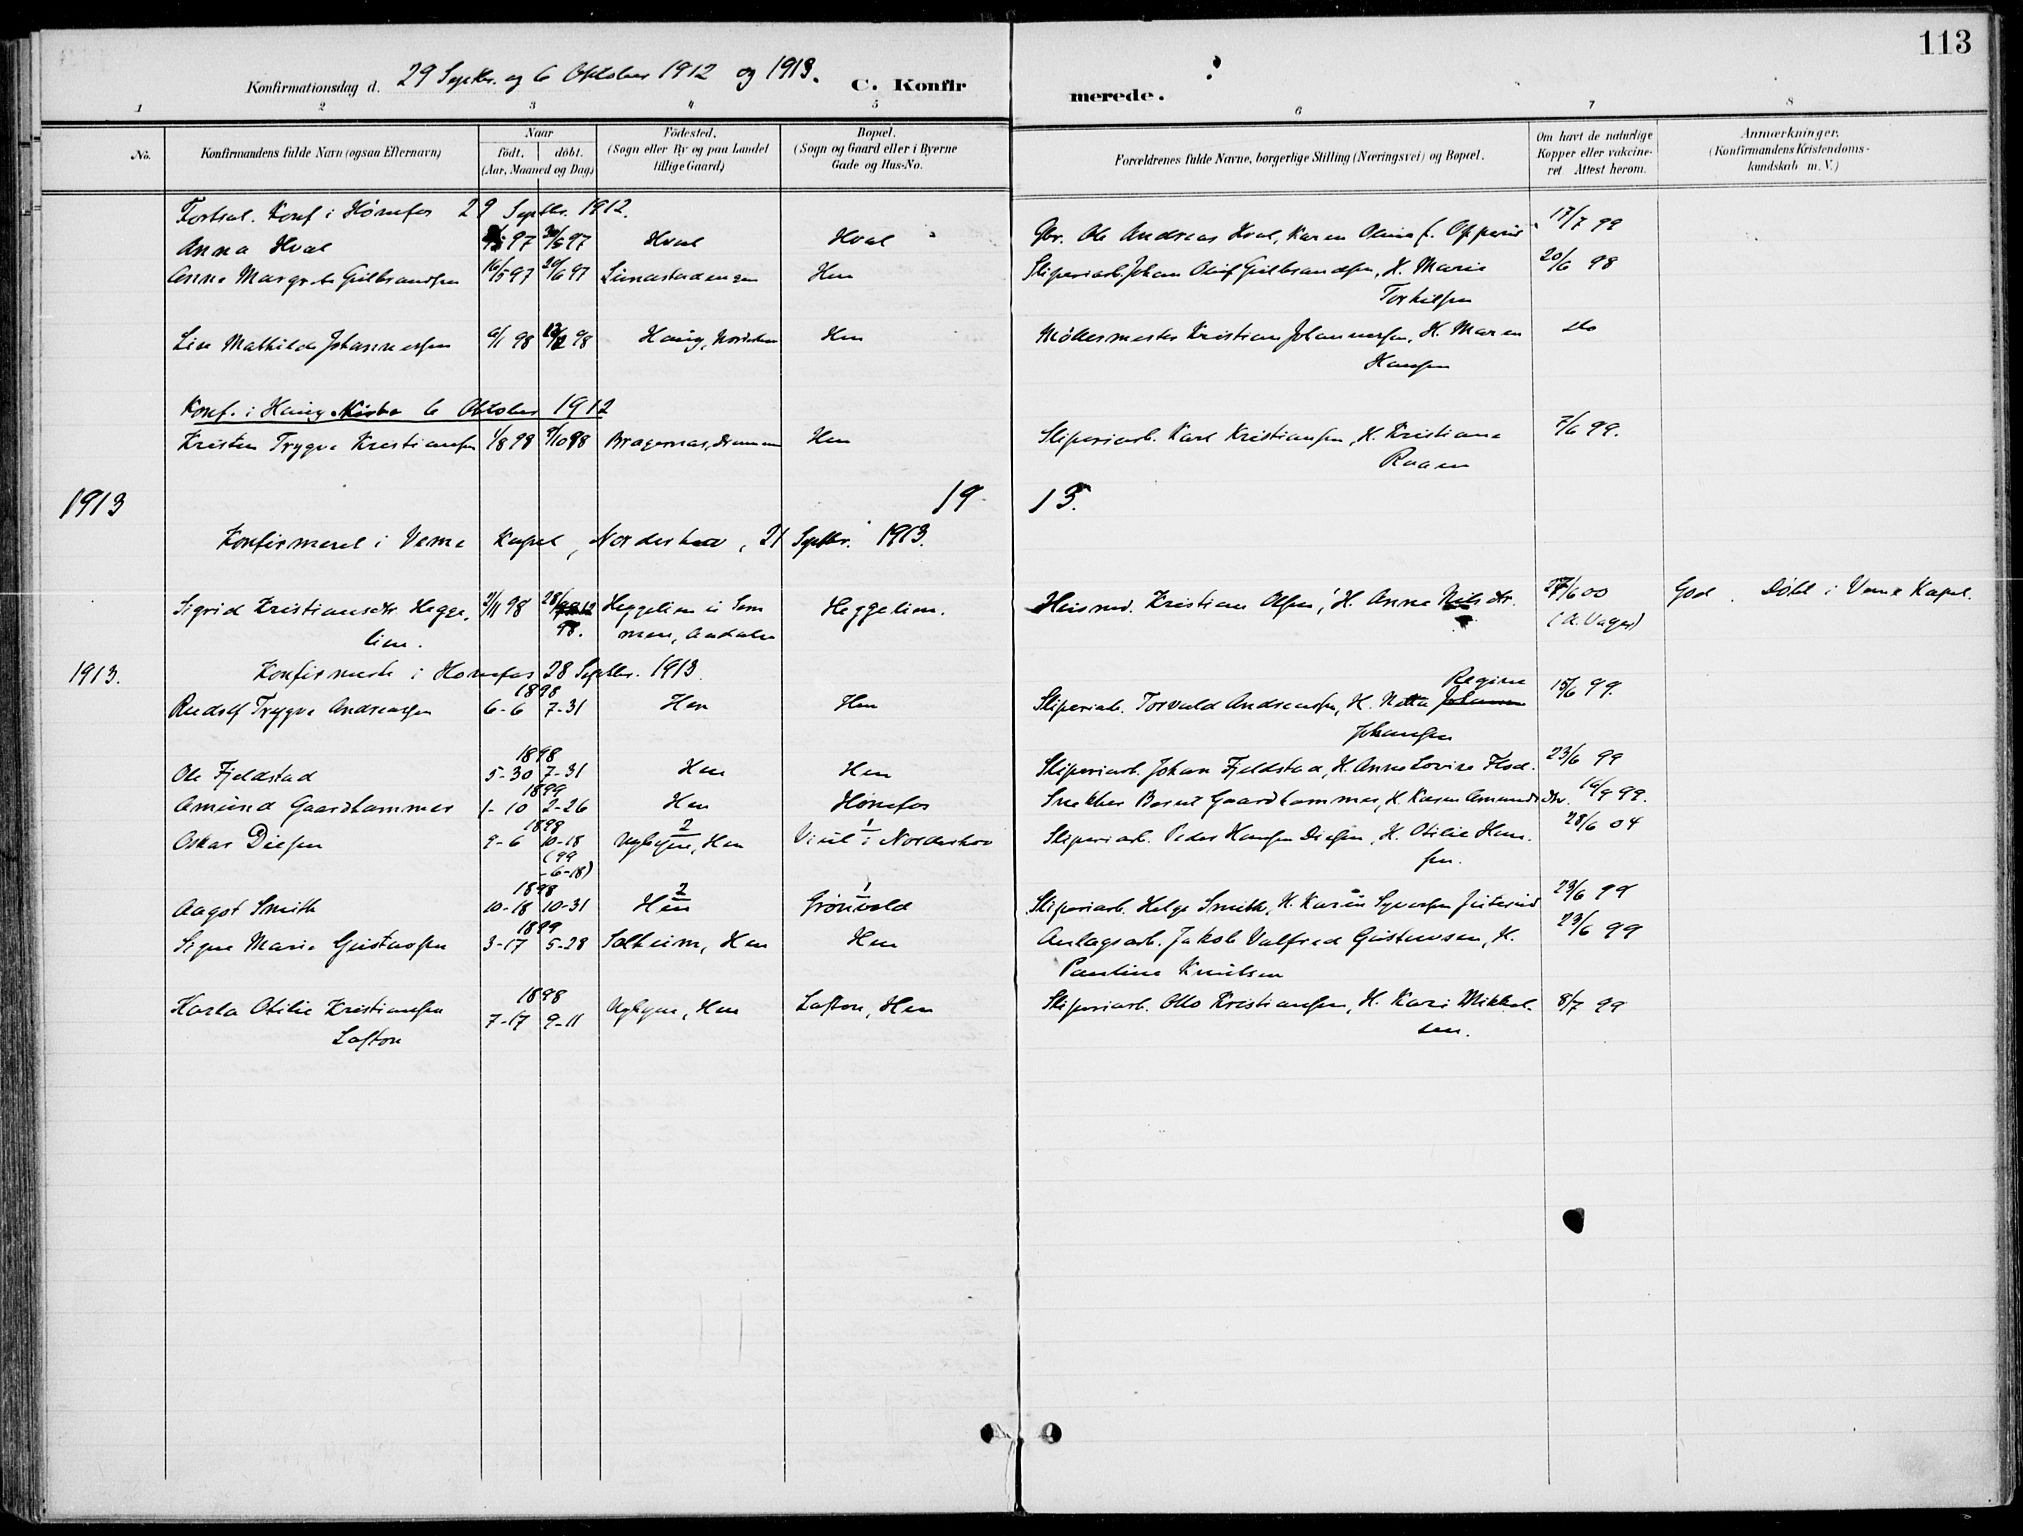 113
Konfirmationsdag d. 29 Septbr. og 6 Oktober 1912 og 1913. C. Konfirmerede.
1 2 3 4 5 6 7 8
No. Konfirmandens fulde Navn (ogsaa Efternavn) Naar født, døbt. (Aar, Maaned og Dag) Födested. (Sogn eller By og paa Landet tillige Gaard) Bopæl. (Sogn og Gaard eller i Byerne Gade og Hus-No. Forældrenes fulde Navne, borgerlige Stilling (Næringsvei) og Bopæl. Om havt de naturlige Kopper eller vakcineret. Attest herom. Anmærkninger. (Konfirmandens Kristendomskundskab m. V.)
Fortsat. Konf i Hönefos 29 Septbr. 1912.
Anna Hval 97 30/5 97 Hval Hval Gbr. Ole Andreas Hval, Karen Olina f. Opperud 17/7 99
Anna Margrete Gulbrandsen 16/5 97 20/6 97 Hen Sliperiarb. Johan Oluf Gulbrandsen, H. Marie 20/6 98
Torkilsen
Lise Mathilde Johannessen 6/1 98 98 Haug, Norderhov Hen Möllermester Kristian Johannessen, H. Maren do
Hansen
Konf. i Haug Kirke 6 Oktober 1912
Kristen Trygve Kristiansen 1/8 98 9/10 98 Bragernæs, Drammen Hen Sliperiarb. Karl Kristiansen, H. Kristiane 7/6 99.
Roaen
1913 19 13.
Konfirmeret i Veme Kapel, Norderhov, 21 Septbr. 1913.
Sigrid Kristiansdtr. Hegge- 2/11 98 28/12 Heggelien i Som Heggelien. Husmd. Kristian Olsen, H. Anne Nilsdtr. 27/6 00 God. Döbt i Veme Kapel.
lien. 98. men, Aadalen (A. Vager)
1913. Konfirmerte i Hönefos 28 Septbr. 1913.
1898 Regine
Rudolf Trygve Andreassen 6-6 7-31 Hen Hen Sliperiarb. Torvald Andreassen, H. Netta Johanne 15/6 99.
Johansen
1898
Ole Fjeldstad 5-30 7-31 Hen Hen Sliperiarb. Johan Fjeldstad, H. Anne Lovise Flod. 23/6 99
1899
Amund Gaardhammer 1-10 2-26 Hen Hönefos Snekker Bernt Gaardhammer, H. Karen Amundsdtr. 16/9 99.
1898 2 1
Oskar Diesen 9-6 10-18 Nybyen, Hen Viul i Norderhov Sliperiarb. Peder Hansen Diesen, H. Otilie Han- 28/6 04
(99 sen.
-6-18)
1898 2 1
Aagot Smith 10-18 10-31 Hen Grönvold Sliperiarb. Helge Smith, H. Karen Syversen 23/6 99
1899
Signe Marie Gustavsen 3-17 5-28 Solheim, Hen Hen Anlagsarb. Jakob Valfred Gustavsen, H. 23/6 99
Pauline Knutsen
1898
Karla Otilie Kristiansen 7-17 9-11 Nybyen, Hen Loften, Hen Sliperiarb. Otto Kristiansen, H. Kari Mikkel- 8/7 99
Loften sen.